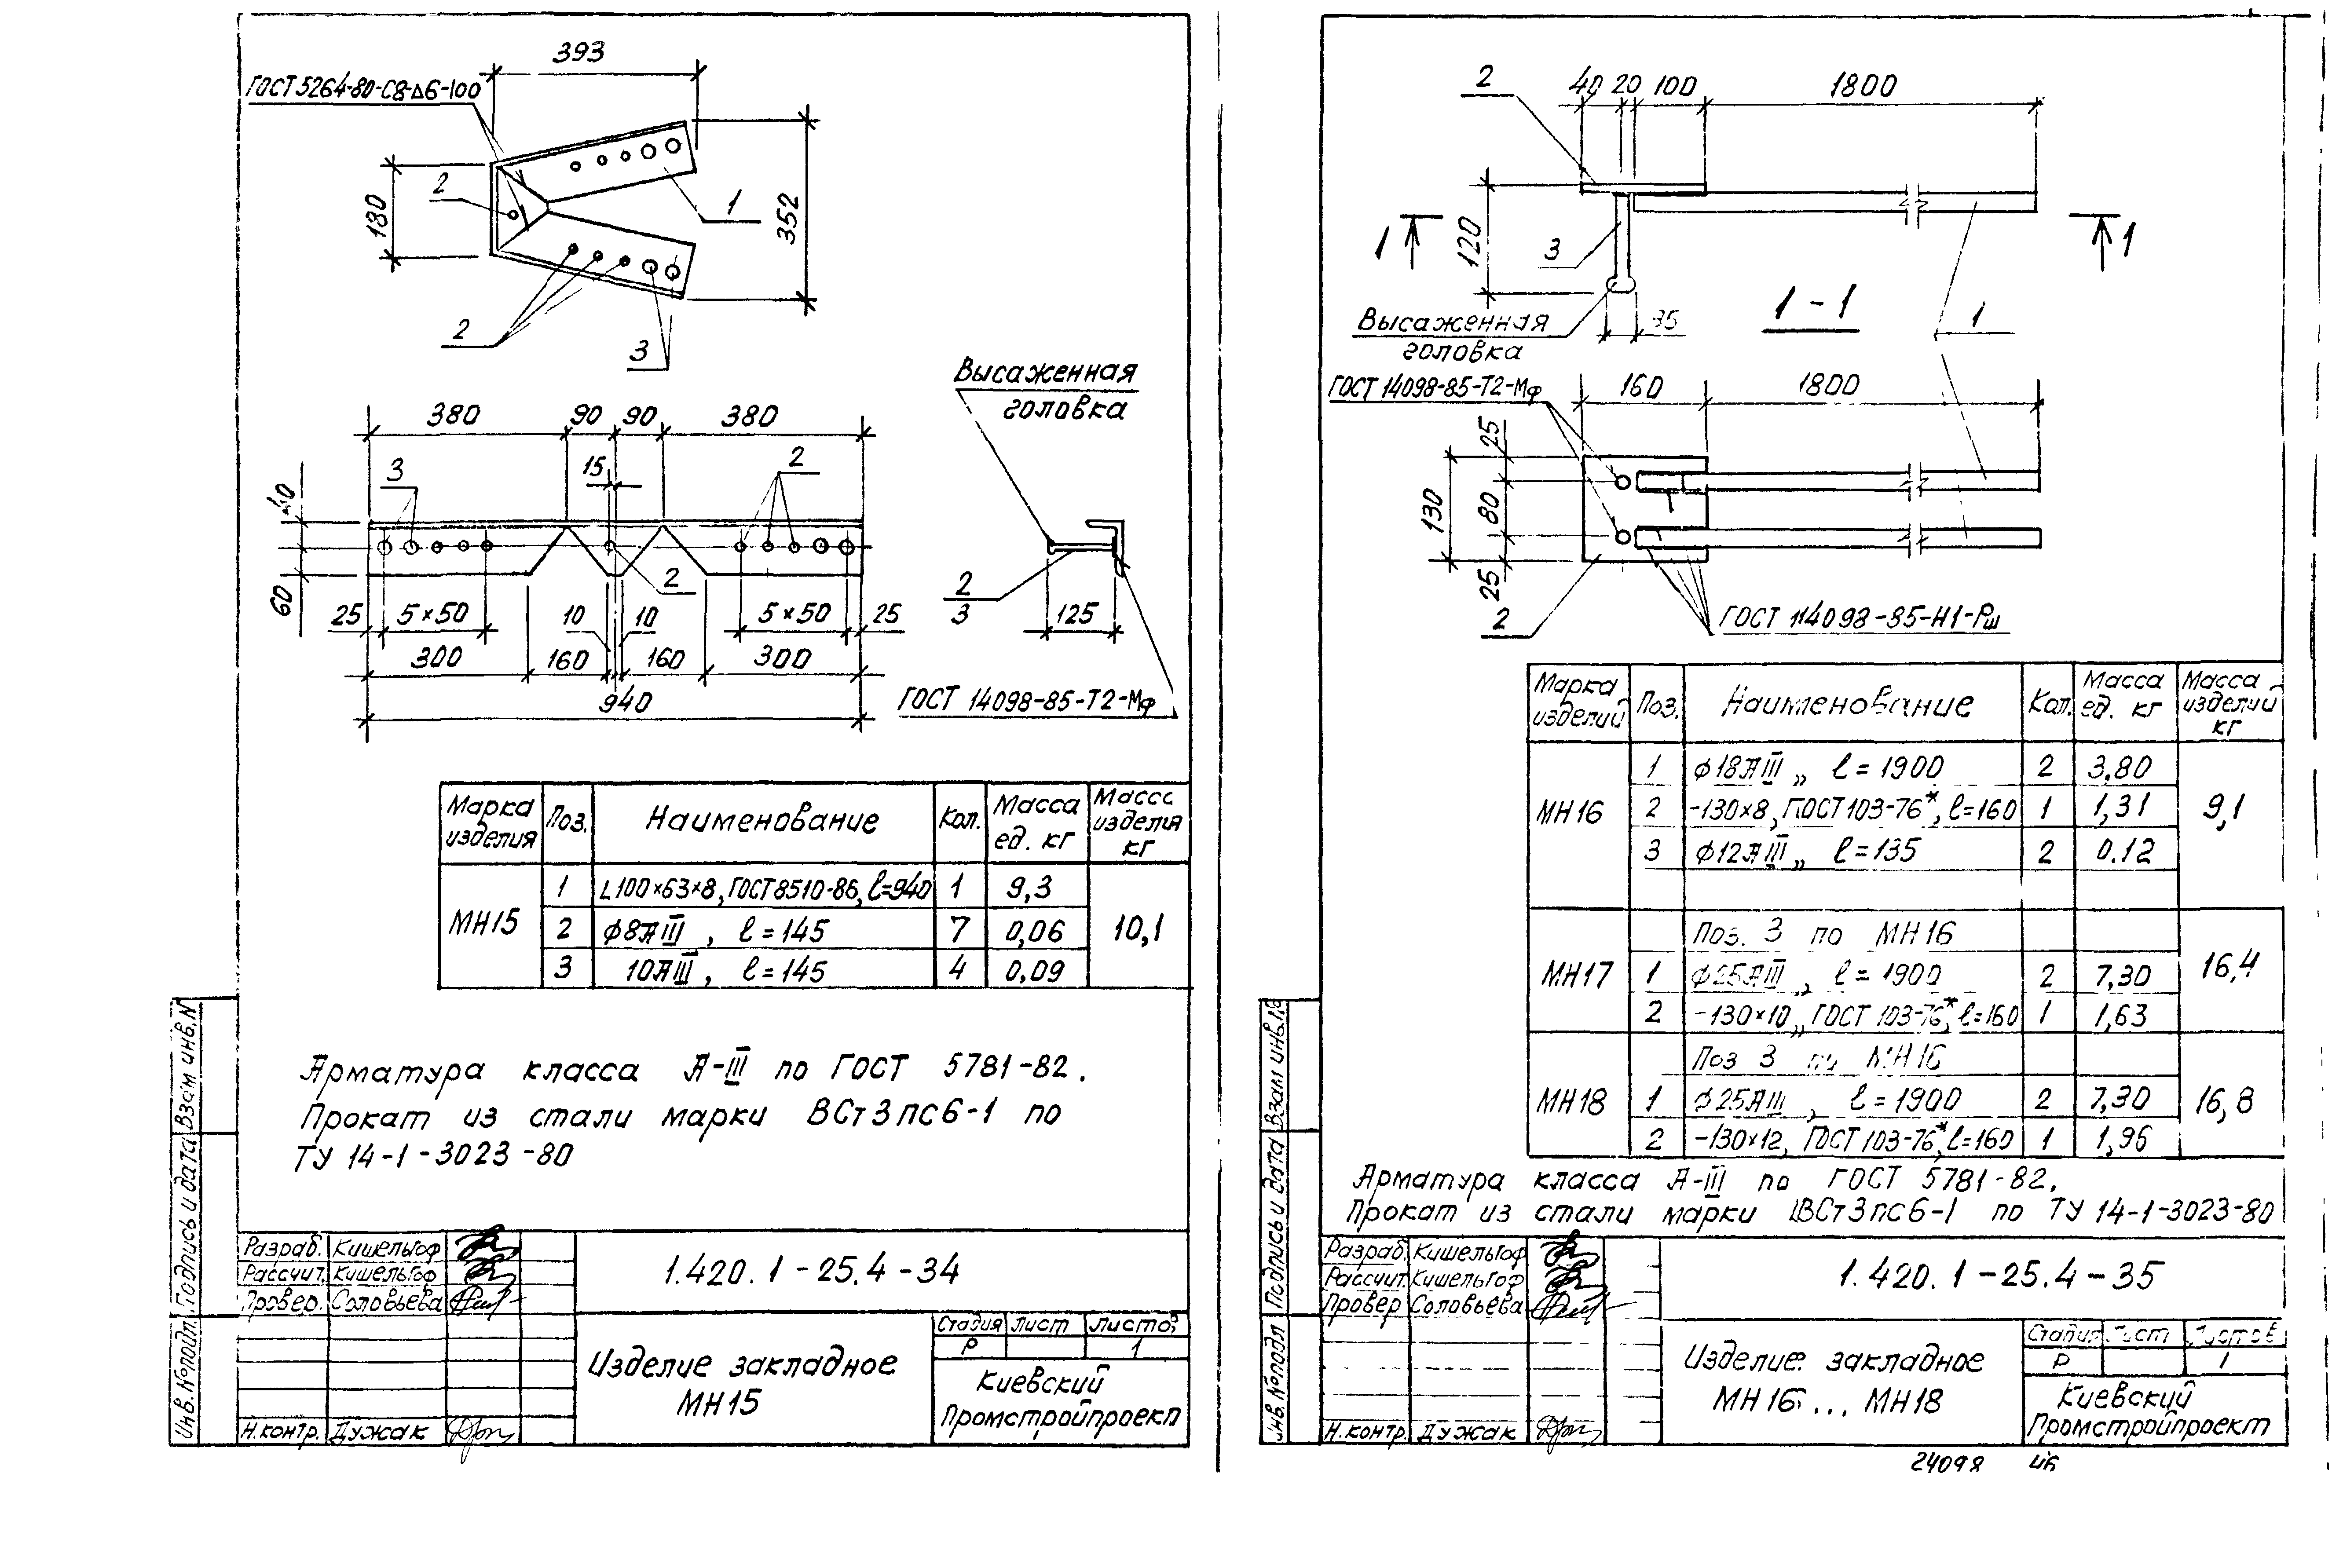 393
ГОСТ 5264-80-С8-Δ6-100
2
180
1
352
2
3
Высаженная
головка
380 90 90 380
15
3
2
40
60
2
2
3
125
25 5×50 10 10 5×50 25
300 160 160 300
940
ГОСТ 14098-85-Т2-Мф
Марка изделия Поз. Наименование Кол. Масса ед. кг Масса изделия кг
МН15
1 L100×63×8, ГОСТ 8510-86, ℓ=940 1 9,3
2 ϕ8АIII, ℓ=145 7 0,06
3 10АIII, ℓ=145 4 0,09
10,1
Арматура класса А-III по ГОСТ 5781-82.
Прокат из стали марки ВСт3пс6-1 по
ТУ 14-1-3023-80
Взам инв.N
Подпись и дата
Инв.№подл.
Разраб. Кишельгоф
Рассчит. Кишельгоф
Провер. Соловьева
Н.контр. Дужак
1.420.1-25.4-34
Изделие закладное
МН15
Стадия Лист Листов
Р 1
Киевский
Промстройпроект
2
40 20 100 1800
120
1 1
3
Высаженная
головка
35
1-1
1
ГОСТ 14098-85-Т2-Мф
160 1800
25
130
80
25
2
ГОСТ 14098-85-Н1-Рш
Марка изделий Поз. Наименование Кол. Масса ед. кг Масса изделий кг
МН16
1 ϕ18АIII,, ℓ=1900 2 3,80
2 -130×8, ГОСТ 103-76*, ℓ=160 1 1,31
3 ϕ12АIII,, ℓ=135 2 0.12
9,1
МН17
Поз. 3 по МН16
1 ϕ25АIII,, ℓ=1900 2 7,30
2 -130×10,, ГОСТ 103-76*, ℓ=160 1 1,63
16,4
МН18
Поз 3 по МН16
1 ϕ25АIII, ℓ=1900 2 7,30
2 -130×12, ГОСТ 103-76*, ℓ=160 1 1,96
16,8
Арматура класса А-III по ГОСТ 5781-82.
Прокат из стали марки ВСт3пс6-1 по ТУ 14-1-3023-80
Взам инв.
Подпись и дата
Инв.№подл
Разраб. Кишельгоф
Рассчит. Кишельгоф
Провер Соловьева
Н.контр. Дужак
1.420.1-25.4-35
Изделие закладное
МН16... МН18
Стадия Лист Листов
Р 1
Киевский
Промстройпроект
24098